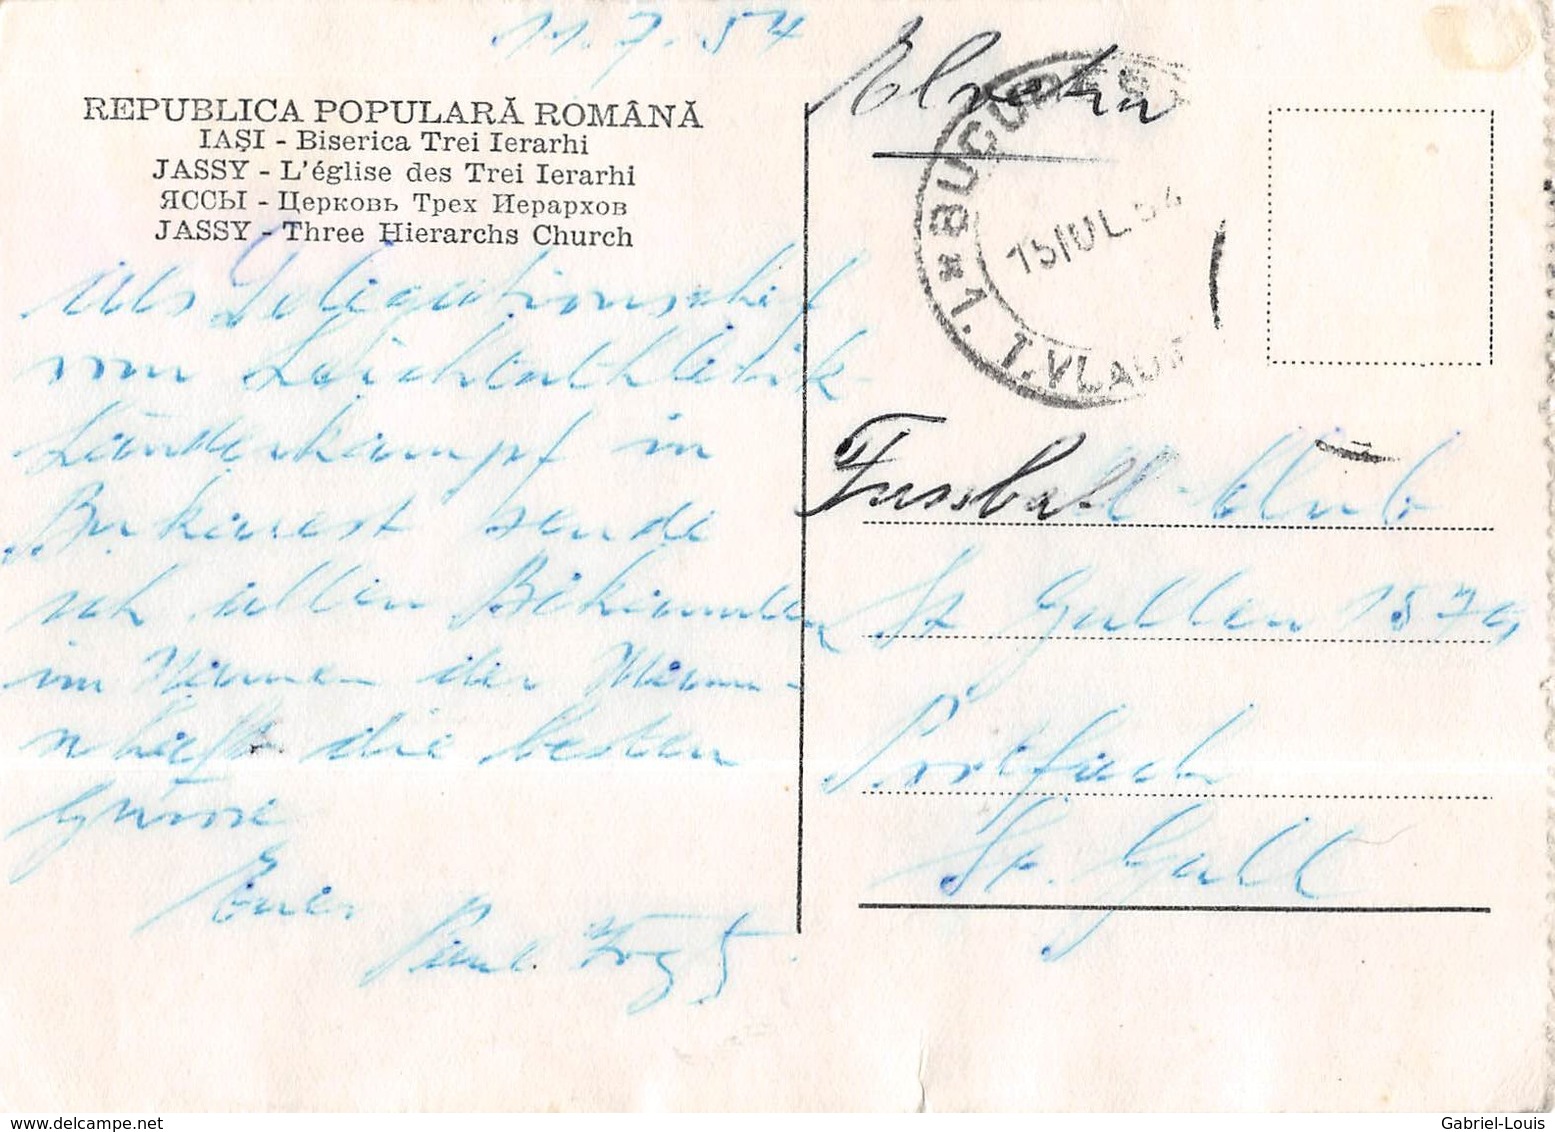 11.7.54
REPUBLICA POPULARĂ ROMÂNĂ
IAŞI - Biserica Trei Ierarhi
JASSY - L'église des Trei Ierarhi
ЯССЫ - Церковь Трех Иерархов
JASSY - Three Hierarchs Church
Als Delegationschef
vom Leichtathletik-
Länderkampf in
Bukarest sende
ich allen Bekannten
im Namen der Mann-
schaft die besten
Grüsse
Euer
Paul
Elvetia
* BUCUREŞTI
15 IUL. 54
1. T. VLADI
Fussball-Club
St Gallen 1879
Postfach
St. Gall
Gabriel-Louis